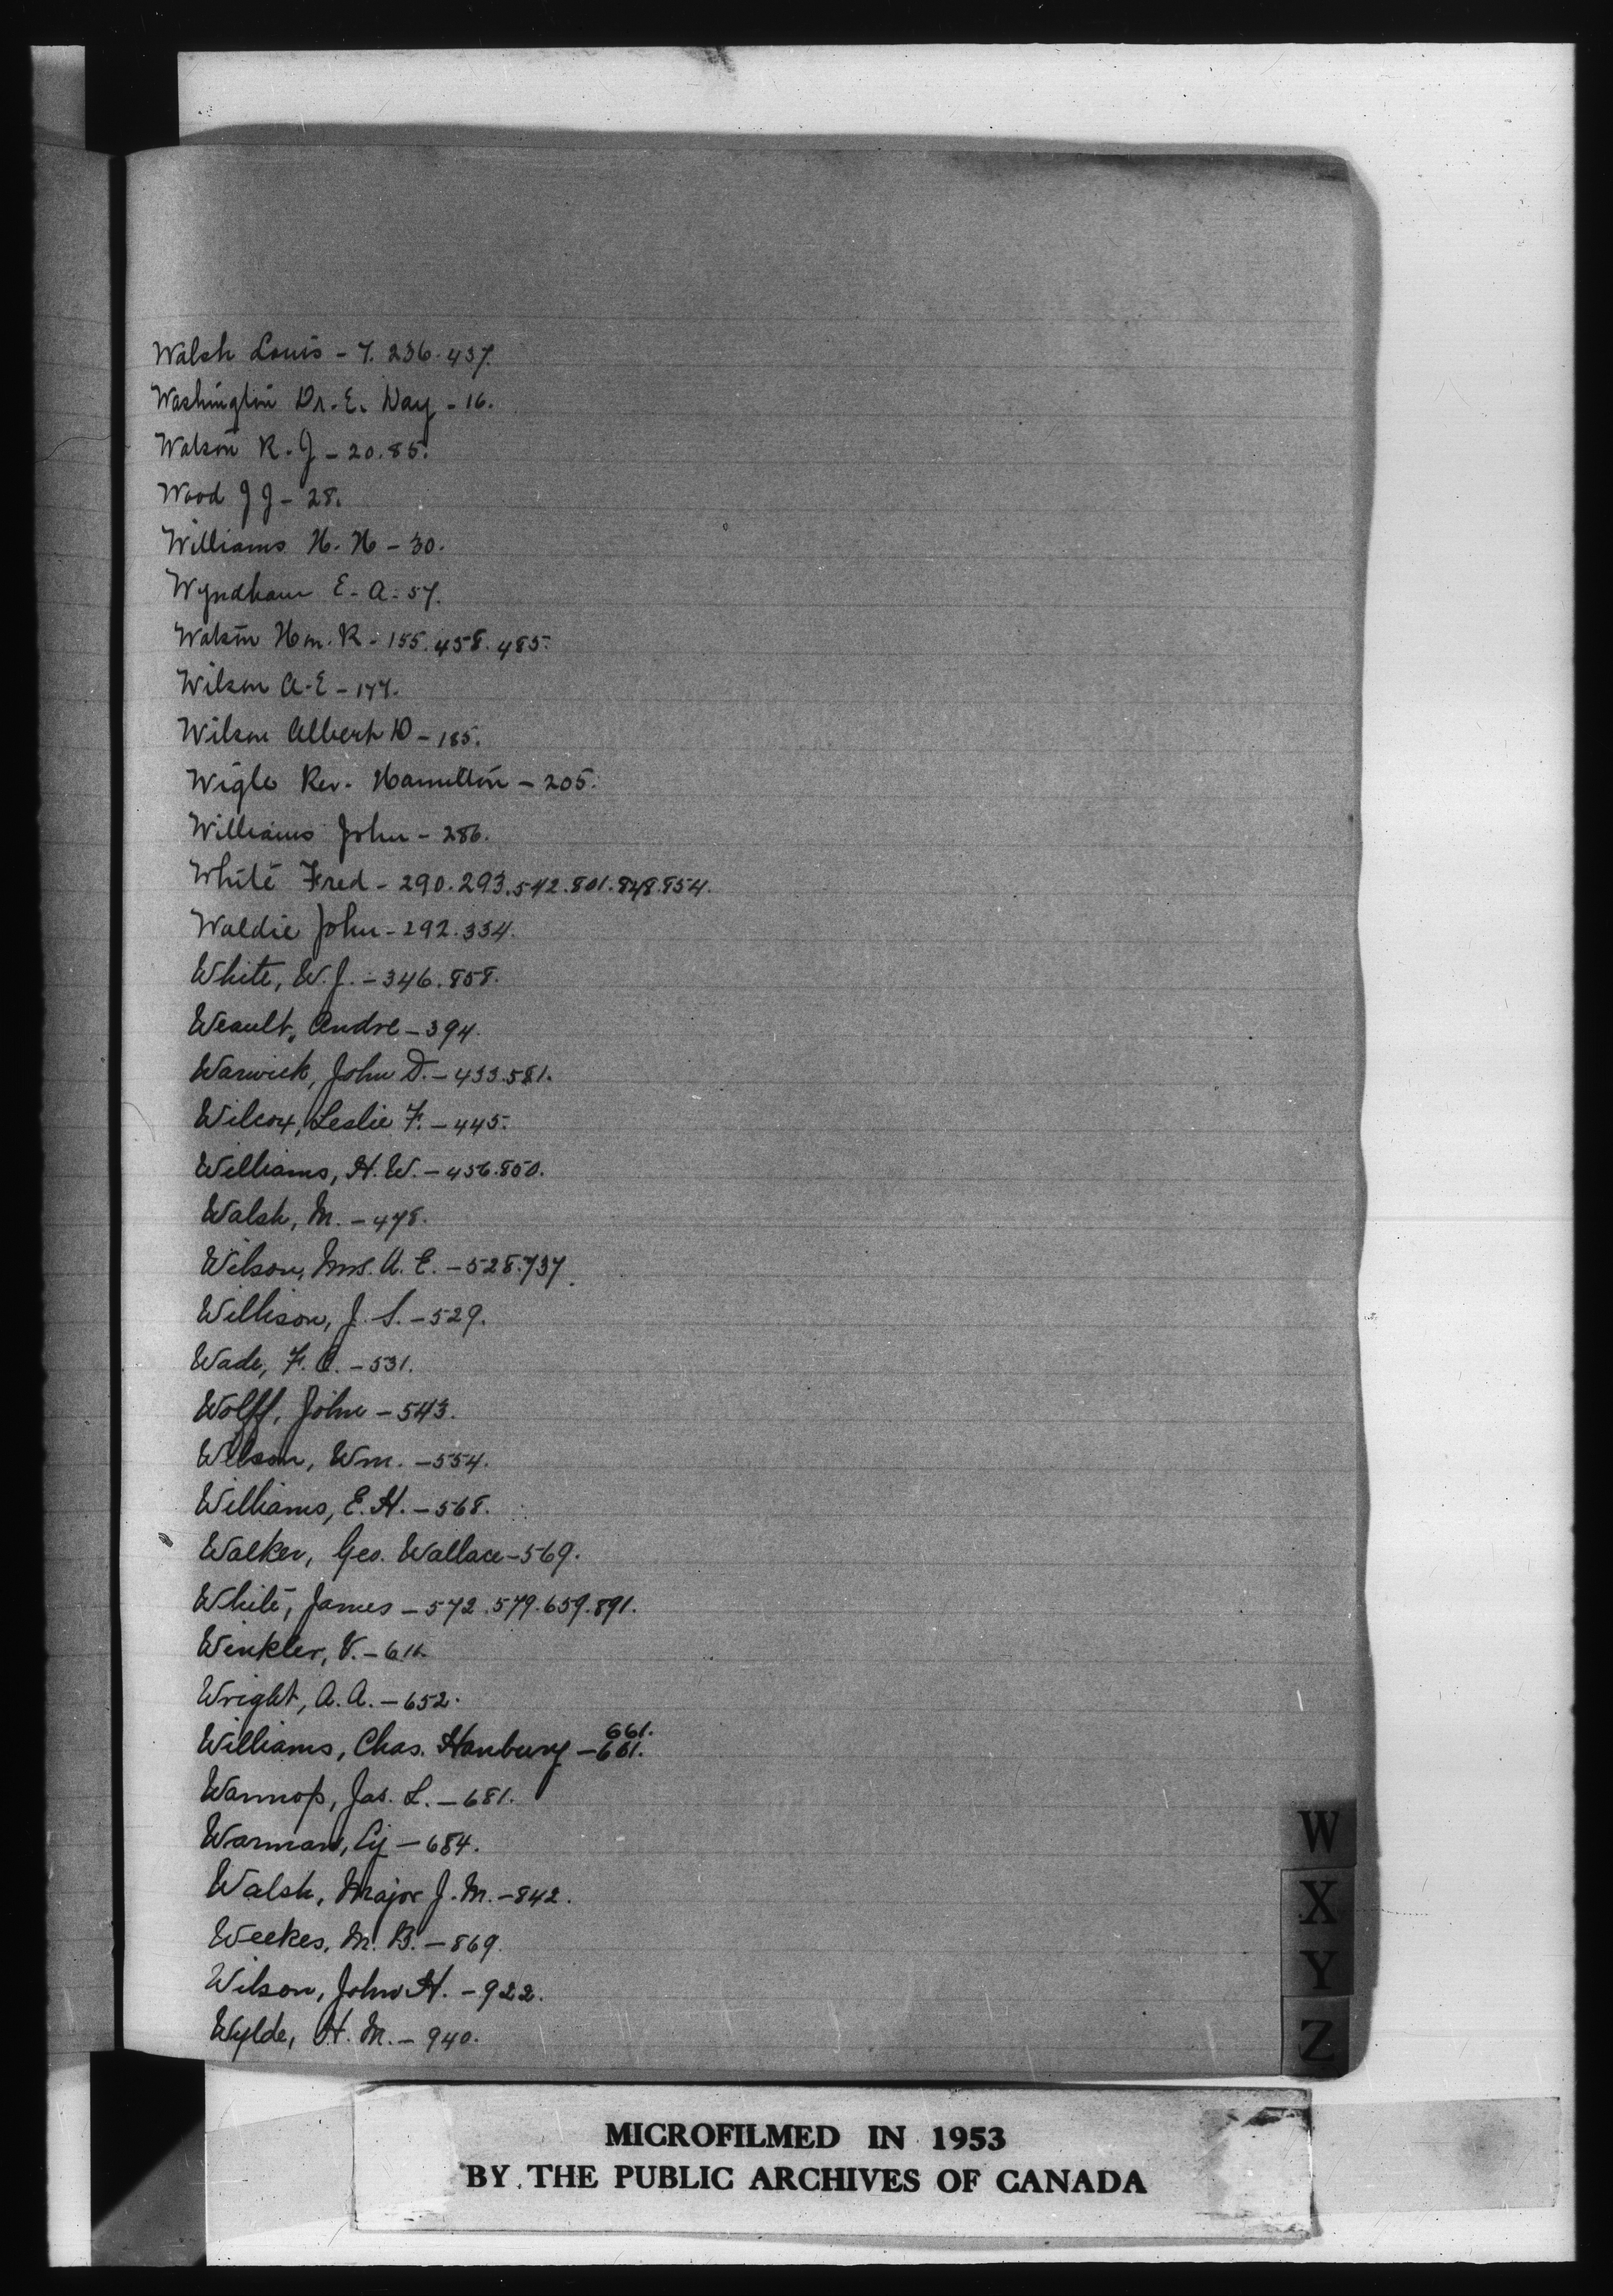 Walsh Louis - 7. 236. 437.
Washington Dr. E. Day - 16.
Watson R. J - 20. 85.
Wood J J - 28.
Williams H. H - 30.
Wyndham E. A. 57.
Watson Hon. R - 155. 458. 485.
Wilson A. E - 177.
Wilson Albert D - 185.
Wigle Rev. Hamilton - 205.
Williams John - 286.
White Fred - 290. 293. 542. 801. 848. 854.
Waldie John - 292. 334.
White, W. J. - 346. 858.
Weault, Andre - 394.
Warwick, John D. - 433. 581.
Wilcox, Leslie F. - 445.
Williams, H. W. - 456. 850.
Walsh, M. - 478.
Wilson, Mrs. A. E. - 528. 737.
Willison, J. S. - 529.
Wade, F. C. - 531.
Wolff, John - 543.
Wilson, Wm. - 554.
Williams, E. H. - 568.
Walker, Geo. Wallace - 569.
White, James - 572. 579. 659. 891.
Winkler, V. - 611.
Wright, A. A. - 652.
661.
Williams, Chas. Hanbury - 661.
Wannop, Jas. L. - 681.
Warman, Cy - 684.
Walsh, Major J. M. - 842.
Weekes, M. B. - 869.
Wilson, John H. - 922.
Wylde, H. M. - 940.
W
X
Y
Z
MICROFILMED IN 1953
BY THE PUBLIC ARCHIVES OF CANADA